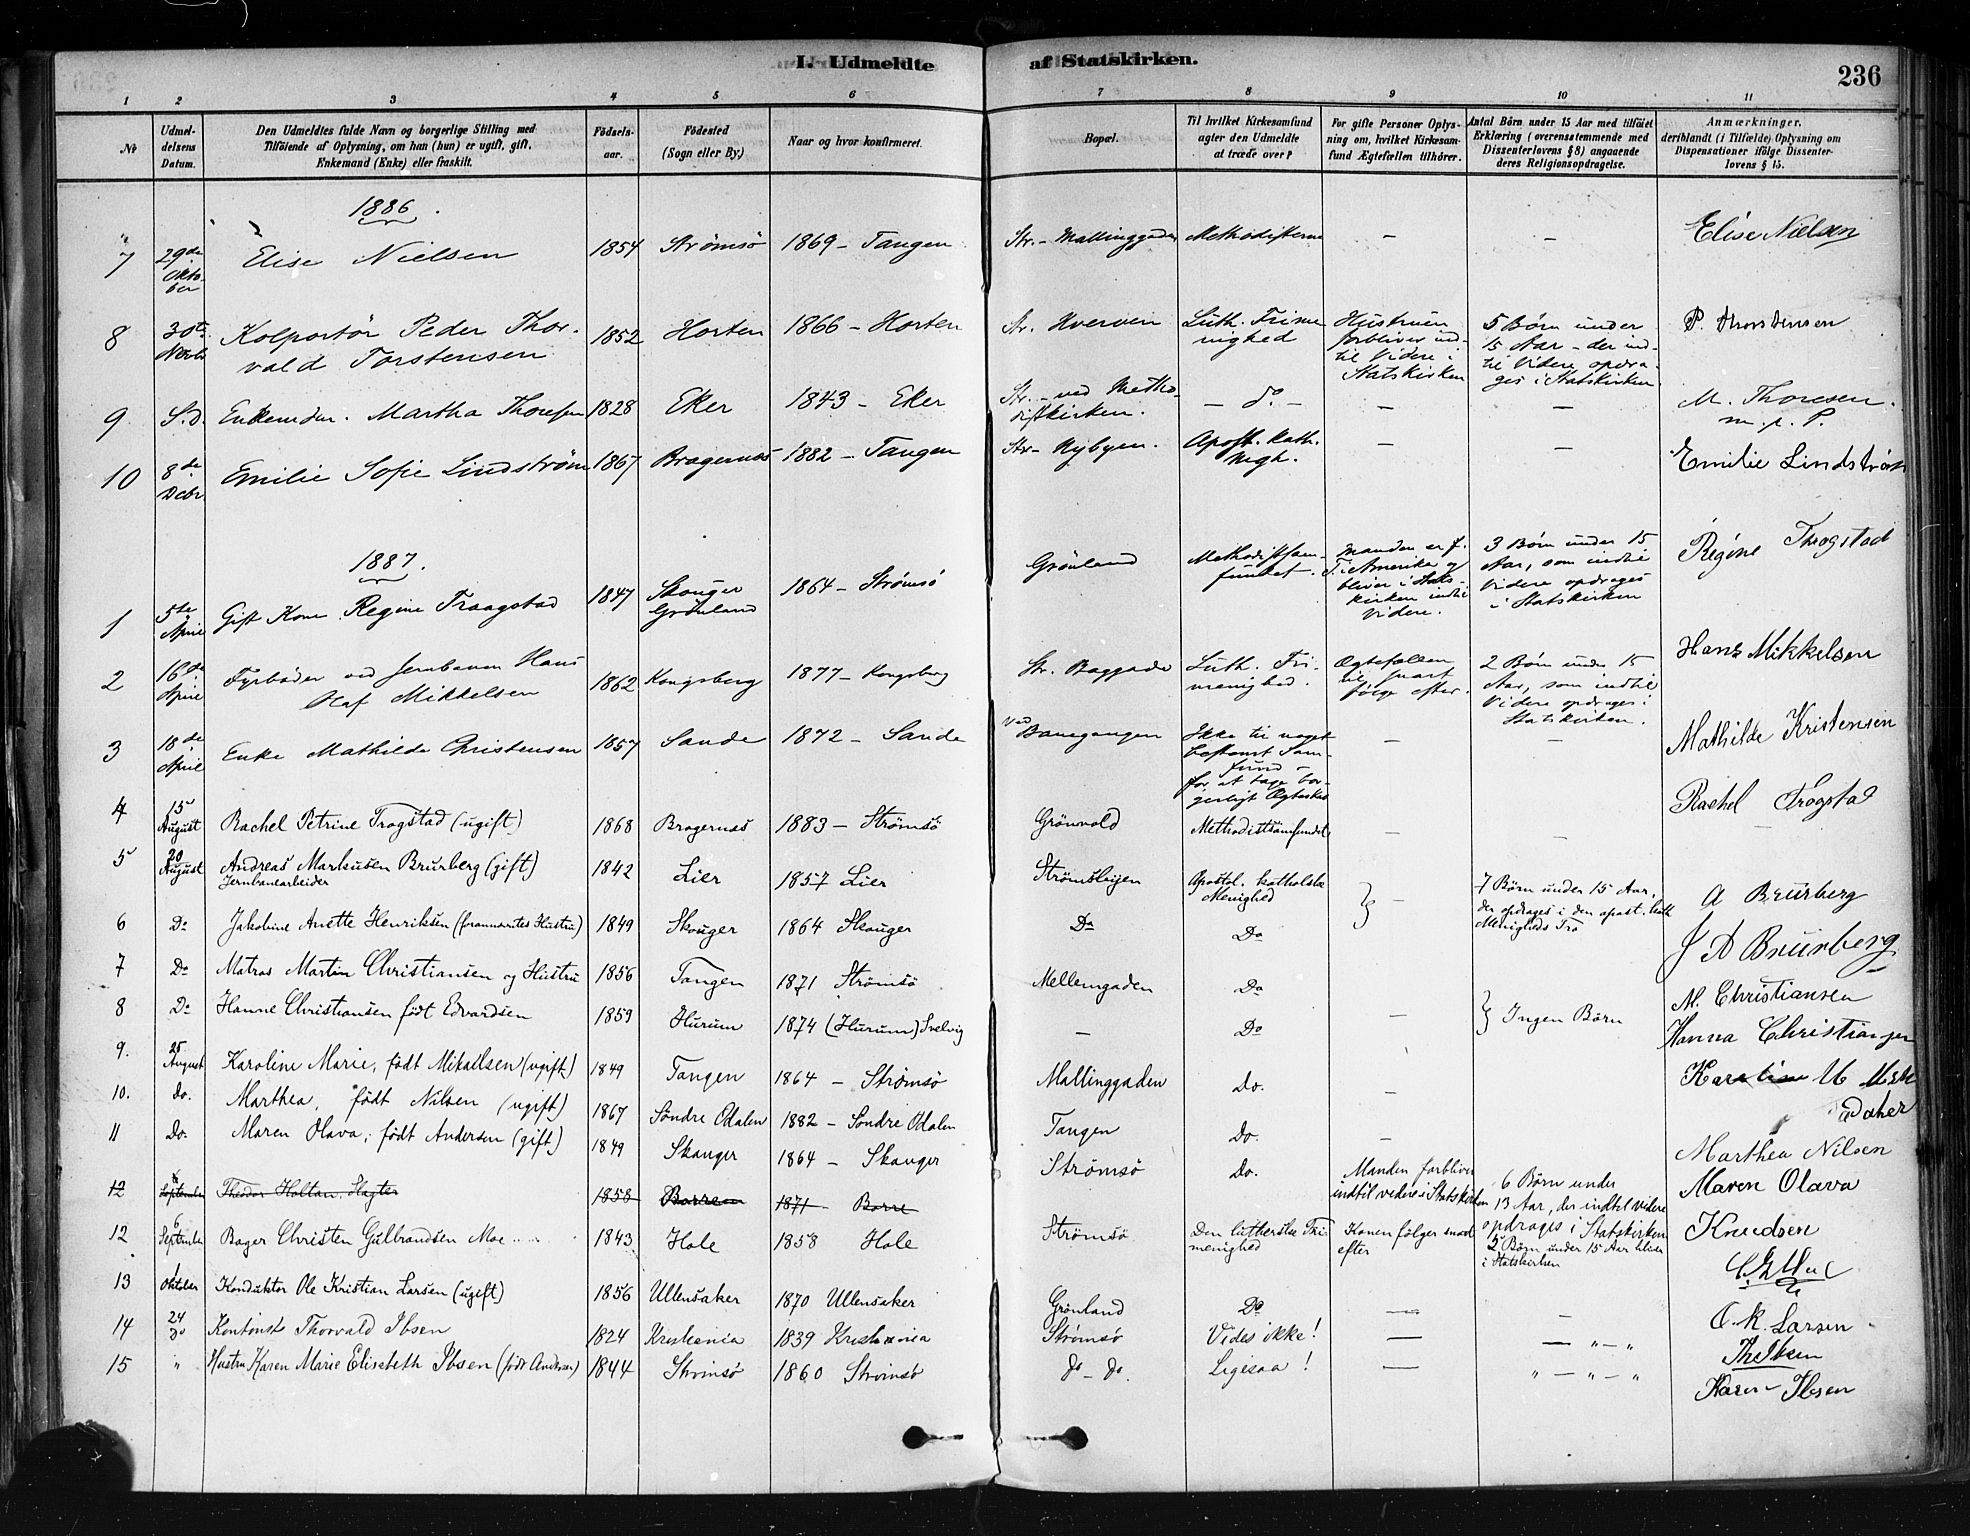 I. Udmeldte af Statskirken.
236
1 2 3 4 5 6 7 8 9 10 11
No
Udmel-
delsens
Datum.
Den Udmeldtes fulde Navn og borgerlige Stilling med
Tilföiende af Oplysning, om han (hun) er ugift, gift,
Enkemand (Enke) eller fraskilt.
Födsels-
aar.
Födested
(Sogn eller By.)
Naar og hvor konfirmeret.
Bopæl.
Til hvilket Kirkesamfund
agter den Udmeldte
at træde over?
For gifte Personer Oplys-
ning om, hvilket Kirkesam-
fund Ægtefællen tilhörer.
Antal Börn under 15 Aar med tilföiet
Erklæring (overensstemmende med
Dissenterlovens § 8) angaaende
deres Religionsopdragelse.
Anmærkninger,
deriblandt (i Tilfælde) Oplysning om
Dispensationer ifölge Dissenter-
lovens § 15.
1886.
7 29de Okto-ber Elise Nielsen 1854 Strömsö 1869 – Tangen Str. – Mallinggaden Methodisterne – – Elise Nielsen
8 30te Novbr Kolportör Peder Thor-
vald Torstensen 1852 Horten 1866 – Horten Str. Hverven Luth. Frime
nighed Hustruen
forbliver ind-
til Videre i
Statskirken 5 Börn under
15 Aar – der ind-
til Videre opdra-
ges i Statskirken P. Thorstensen
9 S.d. Martha Thoresen 1828 Eker 1843 – Eker Str. – ved Metho-
distkirken. – do – – – M. Thoresen.
m. p. P.
10 8de Decbr Emilie Sofie Lindström 1867 Bragernæs 1882 – Tangen Str – Nybyen. Apost. kath.
Mgh. – – Emilie Lindström
1887.
1 5te April Gift Kone Regine Traagstad 1847 Skouger
Grönland 1864 – Strömsö Grönland Methodistsam-
fundet. Manden er f.
T. i Amerika og
bliver i Stats-
kirken indtil
Videre. 3 Börn under 15
Aar, som indtil
Videre opdrages
i Statskirken Regine Trogstad
2 16de April Fyrböder ved Jernbanen Hans
Olaf Mikkelsen 1862 Kongsberg 1877 – Kongsberg Str. Baggade Luth. Fri-
menighed. Ægtefællen
vil snart
fölge efter. 2 Börn under 15
Aar, som indtil
Videre opdrages i
Statskirken. Hans Mikkelsen
3 18de April Enke Mathilde Christensen 1857 Sande 1872 – Sande Ved
Banegangen Ikke til noget
bestemt Sam-
fund –
for at tage bor-
gerligt Ægteskab – – Mathilde Kristensen
4 15 August Rachel Petrine Trogstad (ugift) 1868 Bragernæs 1883 – Strömsö Grönvold Methodistsamfundet – – Rachel Trogstad
5 20 August Andreas Markusen Brurberg (gift)
Jernbanearbeider 1842 Lier 1857 Lier Apostol. katholske
Menighed } – 7 Börn under 15 Aar,
der opdrages i den apost. kath
Menigheds Tro A Brurberg
6 Do Jakobine Anette Henriksen (forannævntes Hustru) 1849 Skouger 1864 Skouger Do Do J A Brurberg
7 Do Matros Martin Christiansen og Hustru 1856 Tangen 1871 Strömsö Mellemgaden Do M. Christiansen
8 Do Hanne Christiansen född Edvardsen 1859 Hurum 1874 (Hurum) Svelvig – Do – } Ingen Börn Hanna Christiansen
9. 25 August Karoline Marie, född Mikaelsen (ugift) 1849 Tangen 1864 – Strömsö Mallinggaden Do. – Karoline M
10. do. Marthea, född Nilsen (ugift) 1867 Söndre Odalen 1882 – Söndre Odalen Tangen Do. – Marthea Nilsen
11 Do. Maren Olava, född Andersen (gift) 1849 Skauger 1864 – Skauger Strömsö Do. Manden forbliver
indtil videre i Statskirken 6 Börn under
13 Aar, der indtil videre
opdrages i Statskirken Maren Olava
Knudsen
12 September Theodor Holtan, Slagter 1858 Borre 1871 – Borre
12 6 September Bager Christen Gulbrandsen Moe 1843 Hole 1858 Hole Strömsö Den lutherske Fri-
menighed Konen fölger snart
efter 2 Börn under 15 Aar bliver
i Statskirken
13 1 Oktober Konduktör Ole Kristian Larsen (ugift) 1856 Ullensaker 1870 Ullensaker Grönland Do – – O. K. Larsen
14 24 do Kontorist Thorvald Ibsen 1824 Kristiania 1839 Kristiania Strömsö Vides ikke! – – „ – „ Th Ibsen
15 „ Hustru Karen Marie Elisabeth Ibsen (född Andersen) 1844 Strömsö 1860 Strömsö do – do. Ligesaa! – „ – „ – „ Karen Ibsen